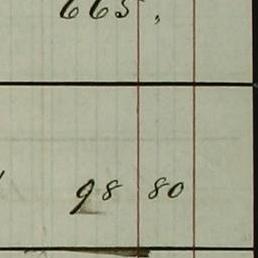 665,
98 80